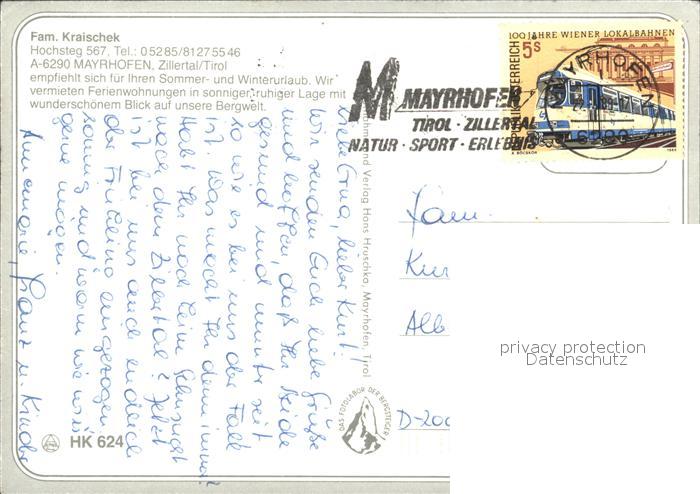 Fam. Kraischek
Hochsteg 567, Tel.: 0 52 85/812 75 5 46
A-6290 MAYRHOFEN, Zillertal/Tirol
empfiehlt sich für Ihren Sommer- und Winterurlaub. Wir
vermieten Ferienwohnungen in sonniger, ruhiger Lage mit
wunderschönem Blick auf unsere Bergwelt.
MAYRHOFEN
TIROL · ZILLERTAL
NATUR · SPORT · ERLEBNIS
100 JAHRE WIENER LOKALBAHNEN
5s
REPUBLIK ÖSTERREICH
MAYRHOFEN
6290
Liebe Erna, lieber Kurt!
Wir senden Euch liebe Grüße
und hoffen, daß Ihr Beide
gesund und munter seit
so wie es bei uns der Fall
ist. Was macht Ihr denn immer
Habt Ihr noch kein Sehnsucht
nach dem Zillertal? Jetzt
ist bei uns auch endlich
der Frühling eingezogen
sonnig und warm wie wir's
gerne mögen.
Annemarie, Franz u. Kinder
Verlag Hans Hruschka, Mayrhofen, Tirol
DAS FOTOLABOR DER BERGSTEIGER
HK 624
Fam.
Kur
Alb
D-200
privacy protection
Datenschutz